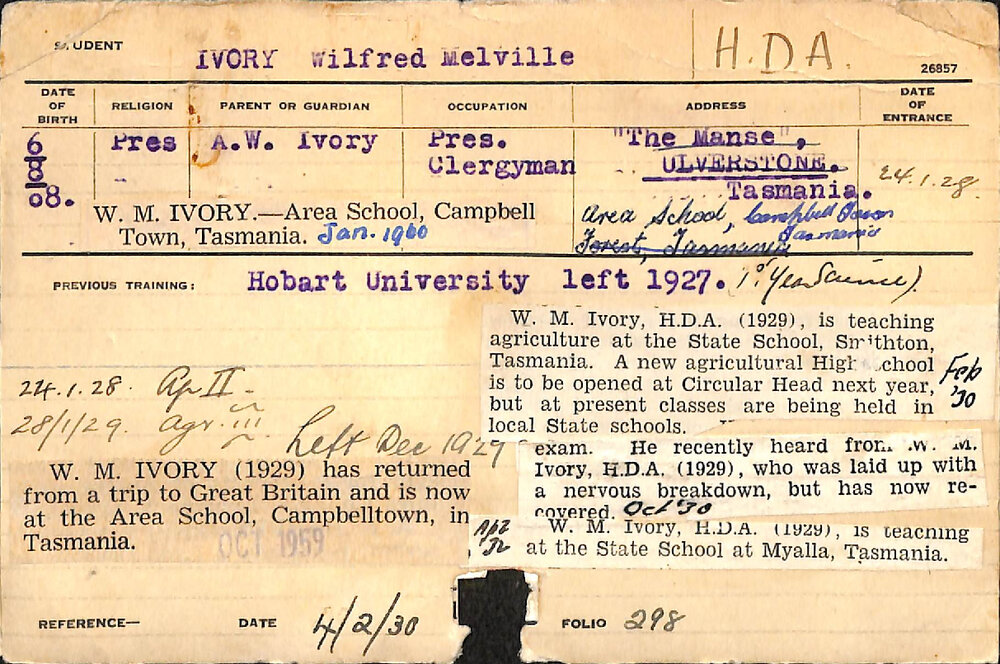 STUDENT
IVORY Wilfred Melville
H.D.A.
26857
DATE OF BIRTH
RELIGION
PARENT OR GUARDIAN
OCCUPATION
ADDRESS
DATE OF ENTRANCE
6/8/08.
Pres
A.W. Ivory
Pres. Clergyman
"The Manse",
ULVERSTONE.
Tasmania.
24.1.28
W. M. IVORY.—Area School, Campbell
Town, Tasmania. Jan. 1960
Area School, Campbell Town
Tasmania
Forest, Tasmania
PREVIOUS TRAINING:
Hobart University left 1927. (1st Year Science).
W. M. Ivory, H.D.A. (1929), is teaching
agriculture at the State School, Smithton,
Tasmania. A new agricultural High School
is to be opened at Circular Head next year,
but at present classes are being held in
local State schools.
Feb '30
24.1.28. Ag II -
28/1/29. Agr. III
Left Dec 1929
exam. He recently heard from W. M.
Ivory, H.D.A. (1929), who was laid up with
a nervous breakdown, but has now re-
covered. Oct '30
W. M. IVORY (1929) has returned
from a trip to Great Britain and is now
at the Area School, Campbelltown, in
Tasmania.
OCT 1959
W. M. Ivory, H.D.A. (1929), is teaching
at the State School at Myalla, Tasmania.
REFERENCE—
DATE 4/2/30
FOLIO 298